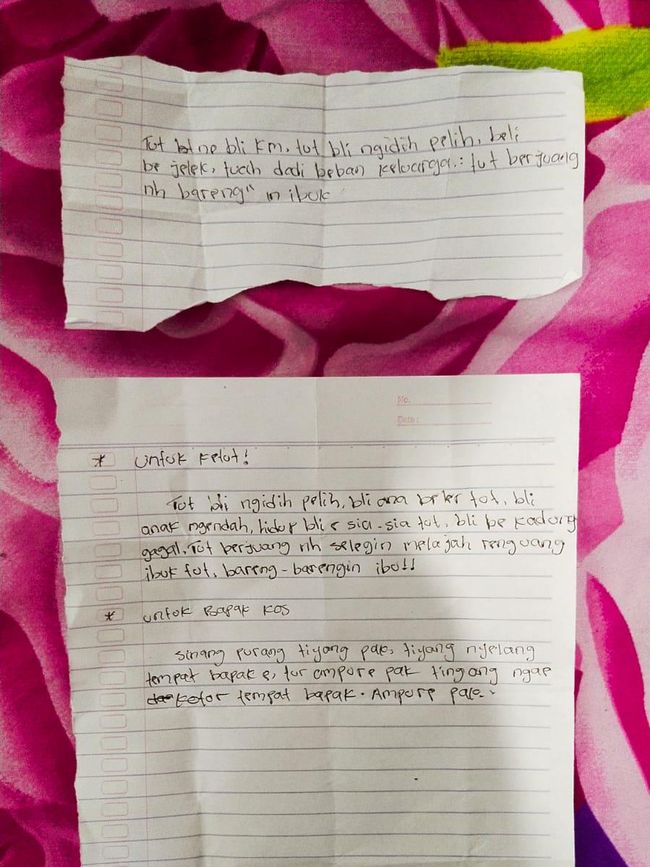 Tut ne bli Km, tut bli ngidih pelih, beli
be jelek, tuah dadi beban keluarga.: tut berjuang
nh bareng" n ibuk
No.
Date:
* Untuk Ketut!
Tut bli ngidih pelih, bli ana beler tut, bli
anak ngendah, hidup bli e sia-sia tut, bli be kadung
gagal, Tut berjuang nh selegin melajah rengguang
ibuk tut, bareng-barengin ibu!!
* untuk Bapak Kos
sinang purang tiyang pak, tiyang nyelang
tempat bapak e, tur ampure pak tingang ngae
kotor tempat bapak. Ampure pak..